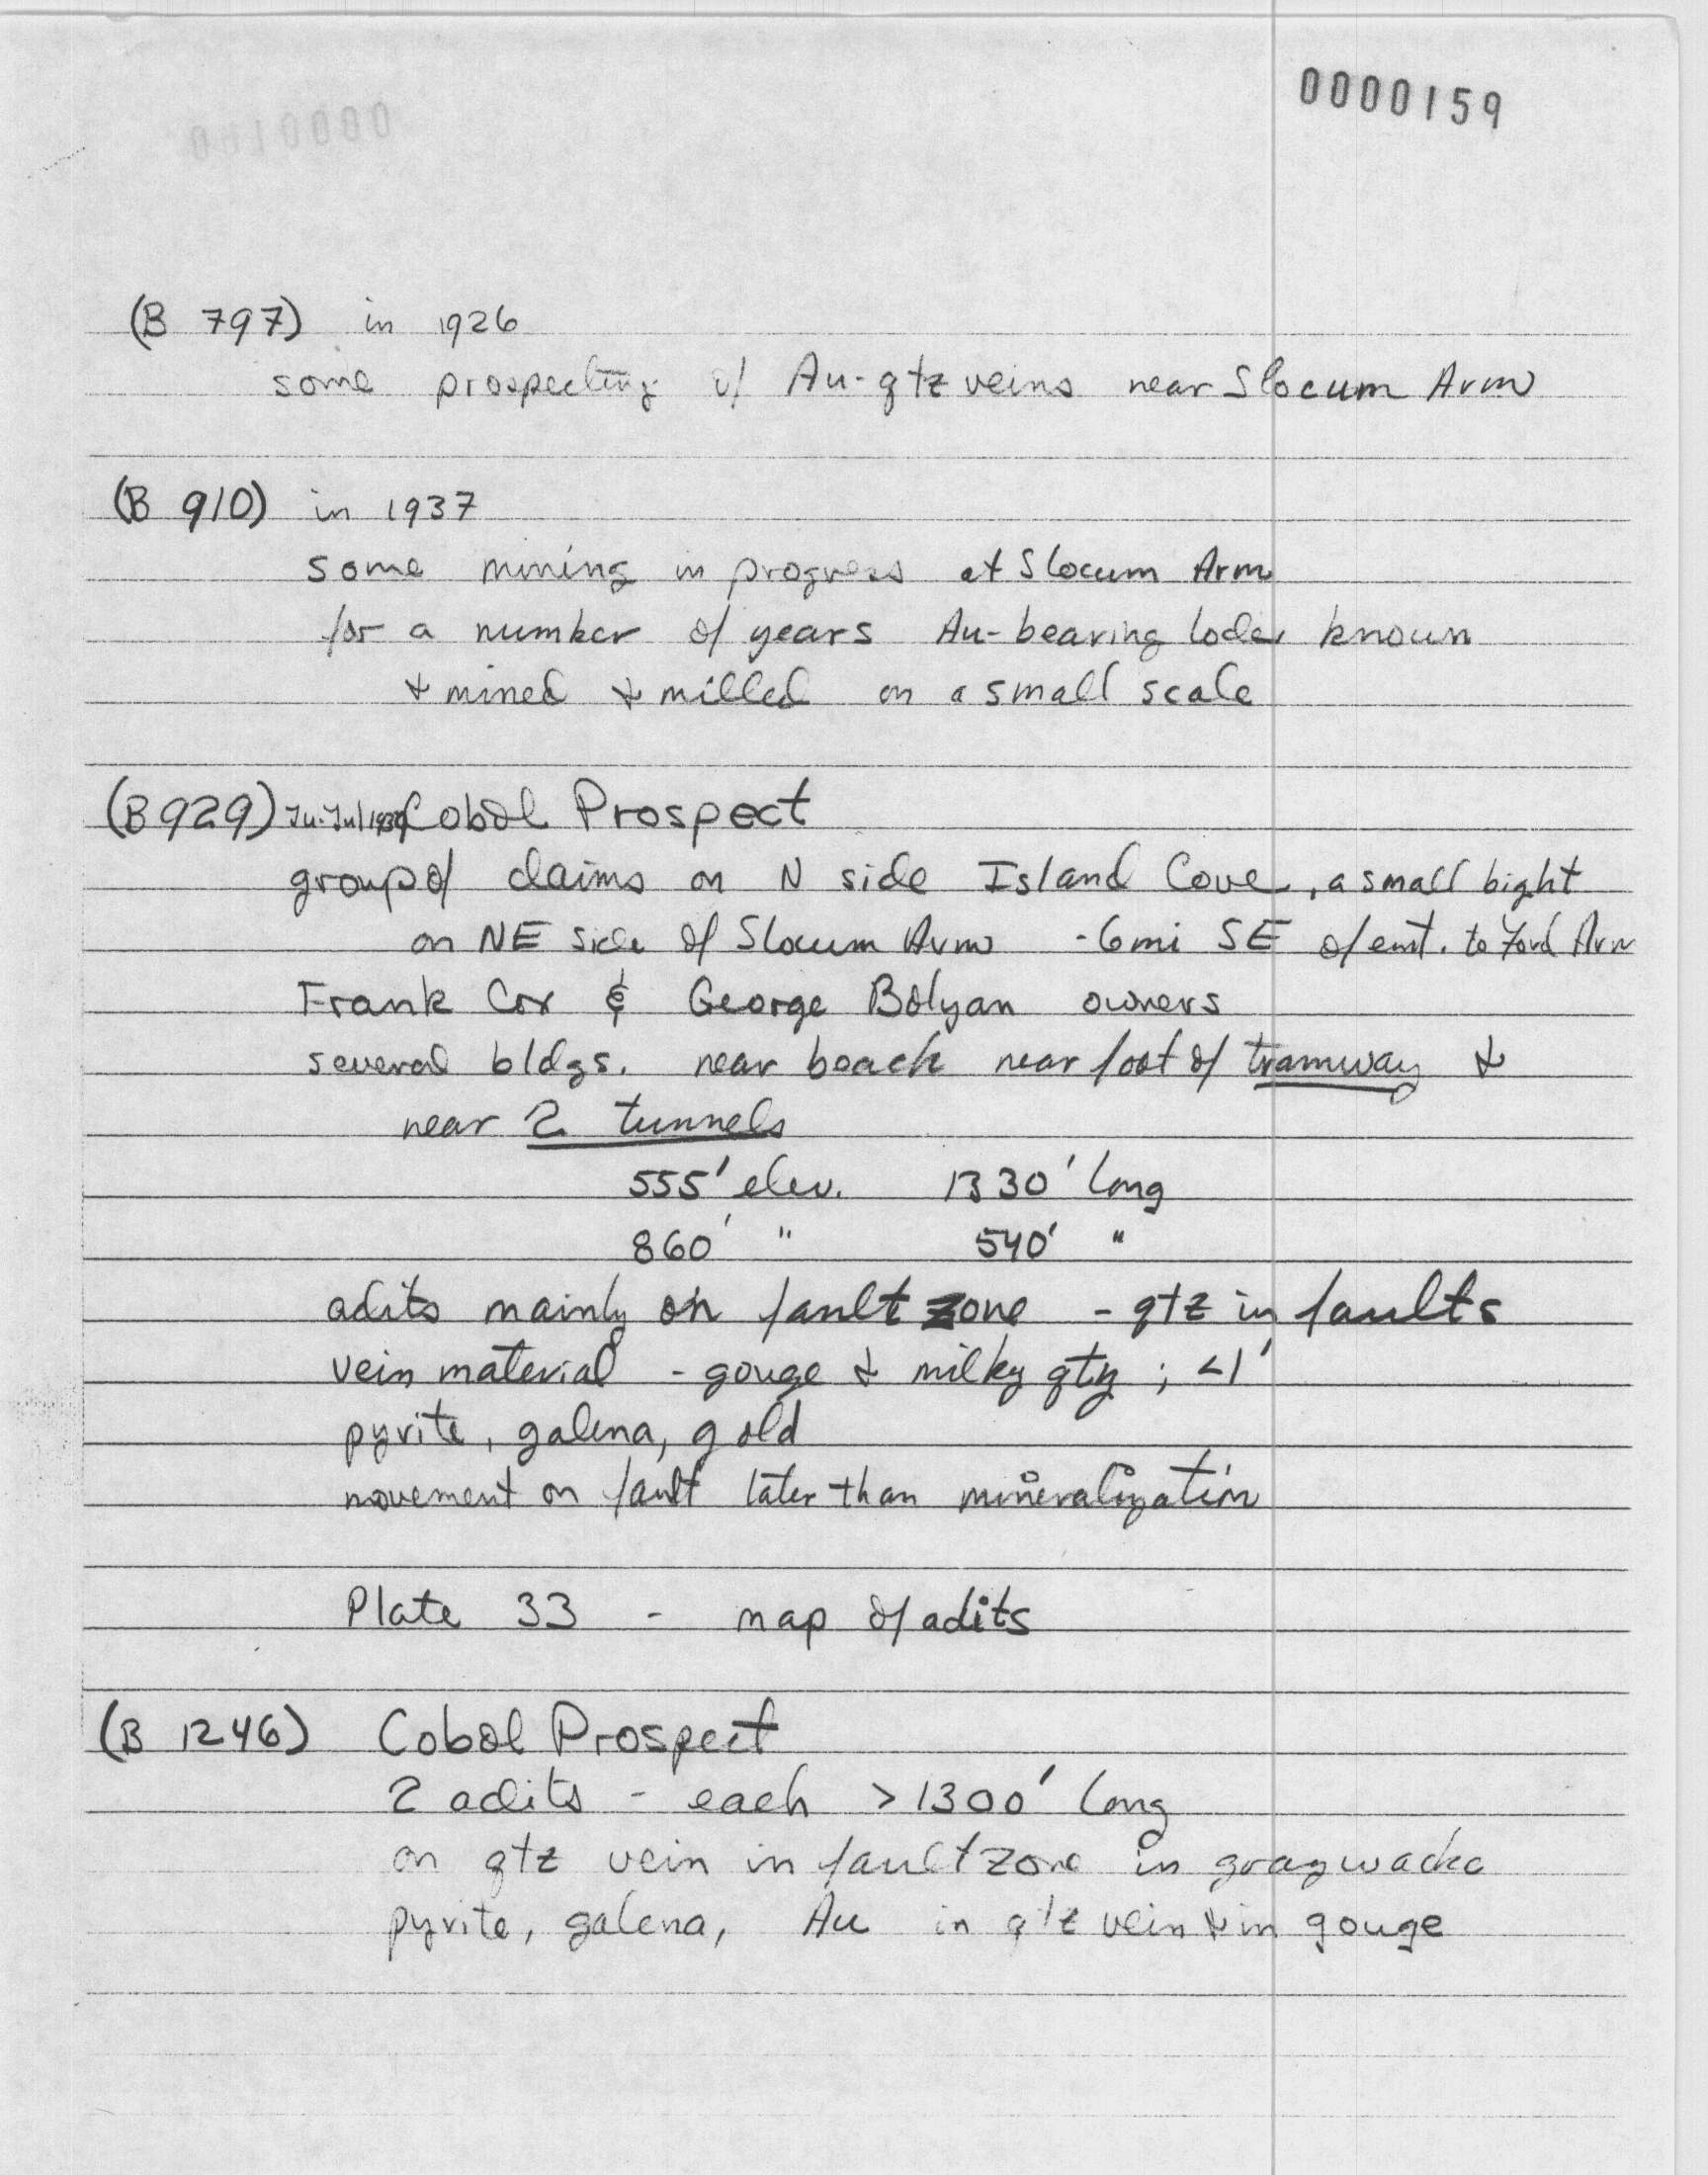 0000159
(B 797) in 1926
some prospecting of Au-qtz veins near Slocum Arm
(B 910) in 1937
some mining in progress at Slocum Arm
for a number of years Au-bearing lodes known
& mined & milled on a small scale
(B 929) Cobol Prospect
group of claims on N side Island Cove, a small bight
on NE side of Slocum Arm -6mi SE of ent. to Ford Arm
Frank Cox & George Bolyan owners
several bldgs. near beach near foot of tramway &
near 2 tunnels
555' elev. 1330' long
860' " 540' "
adits mainly on fault zone - qtz in faults
vein material - gouge & milky qtz ; <1'
pyrite, galena, gold
movement on fault later than mineralization
Plate 33 - map of adits
(B 1246) Cobol Prospect
2 adits - each >1300' long
on qtz vein in fault zone in graywacke
pyrite, galena, Au in qtz vein & in gouge